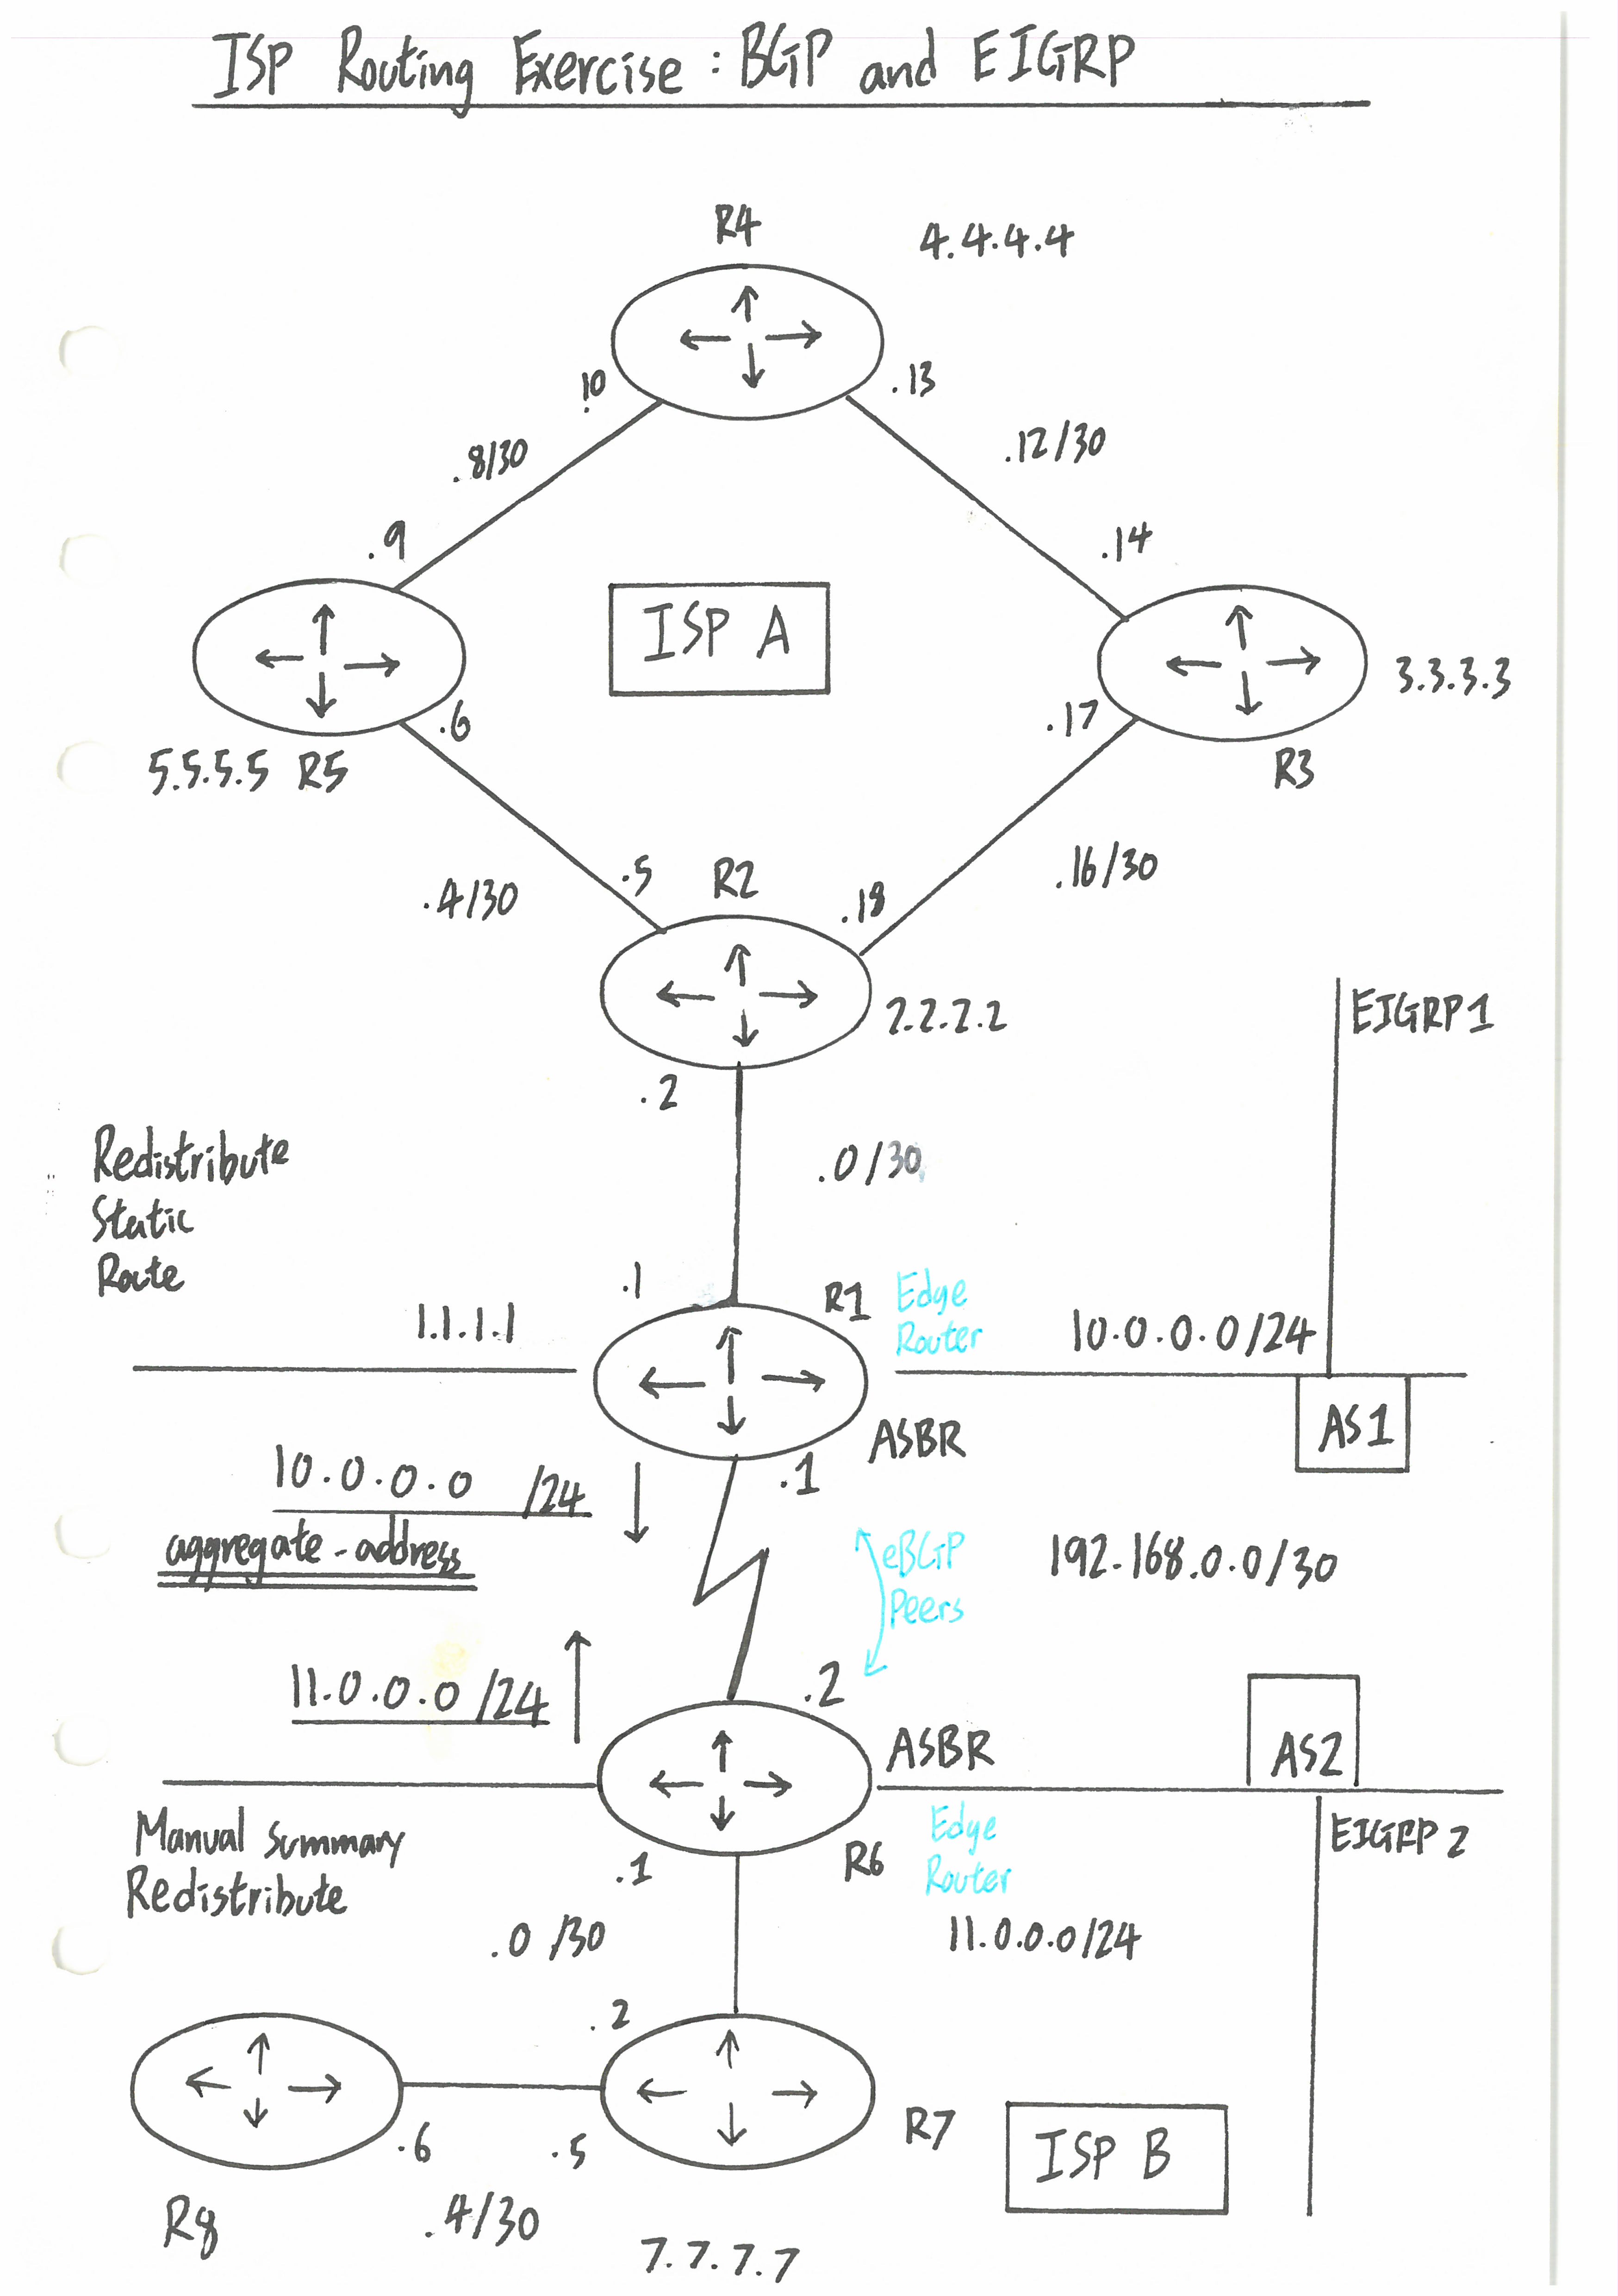 ISP Routing Exercise : BGP and EIGRP
R4
4.4.4.4
.10
.13
.8/30
.12/30
.9
.14
ISP A
3.3.3.3
.6
.17
5.5.5.5 R5
R3
.5
R2
.4/30
.18
.16/30
2.2.2.2
EIGRP1
.2
Redistribute
Static
Route
.0/30
.1
R1
Edge
Router
1.1.1.1
10.0.0.0/24
AS1
ASBR
10.0.0.0 /24
.1
aggregate-address
eBGP
Peers
192.168.0.0/30
11.0.0.0/24
.2
ASBR
AS2
Manual Summary
Redistribute
.1
R6
Edge
Router
EIGRP2
.0/30
11.0.0.0/24
.2
.6
.5
R7
ISP B
R8
.4/30
7.7.7.7